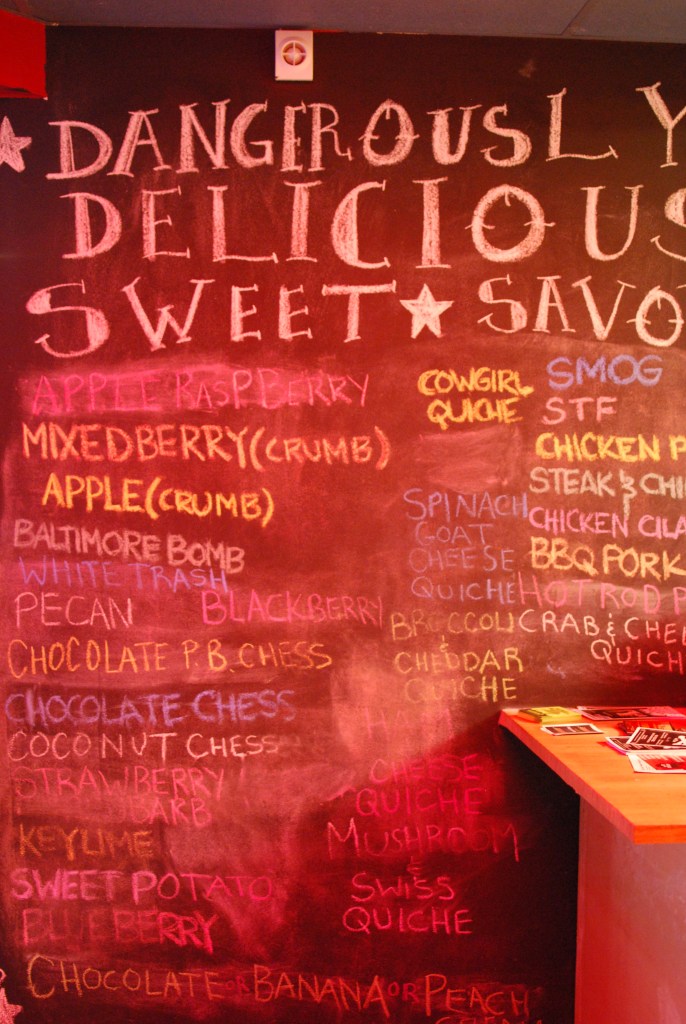 DANGEROUSLY
DELICIOUS
SWEET ★ SAVO
APPLE RASPBERRY
MIXEDBERRY (CRUMB)
APPLE (CRUMB)
BALTIMORE BOMB
WHITE TRASH
PECAN BLACKBERRY
CHOCOLATE P.B. CHESS
CHOCOLATE CHESS
COCONUT CHESS
STRAWBERRY
BARB
KEYLIME
SWEET POTATO
BLUEBERRY
CHOCOLATE OR BANANA OR PEACH
COWGIRL
QUICHE
SPINACH
GOAT
CHEESE
QUICHE
BROCCOLI
&
CHEDDAR
QUICHE
HAM
CHEESE
QUICHE
MUSHROOM
&
SWISS
QUICHE
SMOG
STF
CHICKEN P
STEAK & CHI
CHICKEN CILA
BBQ PORK
HOT ROD P
CRAB & CHE
QUICH